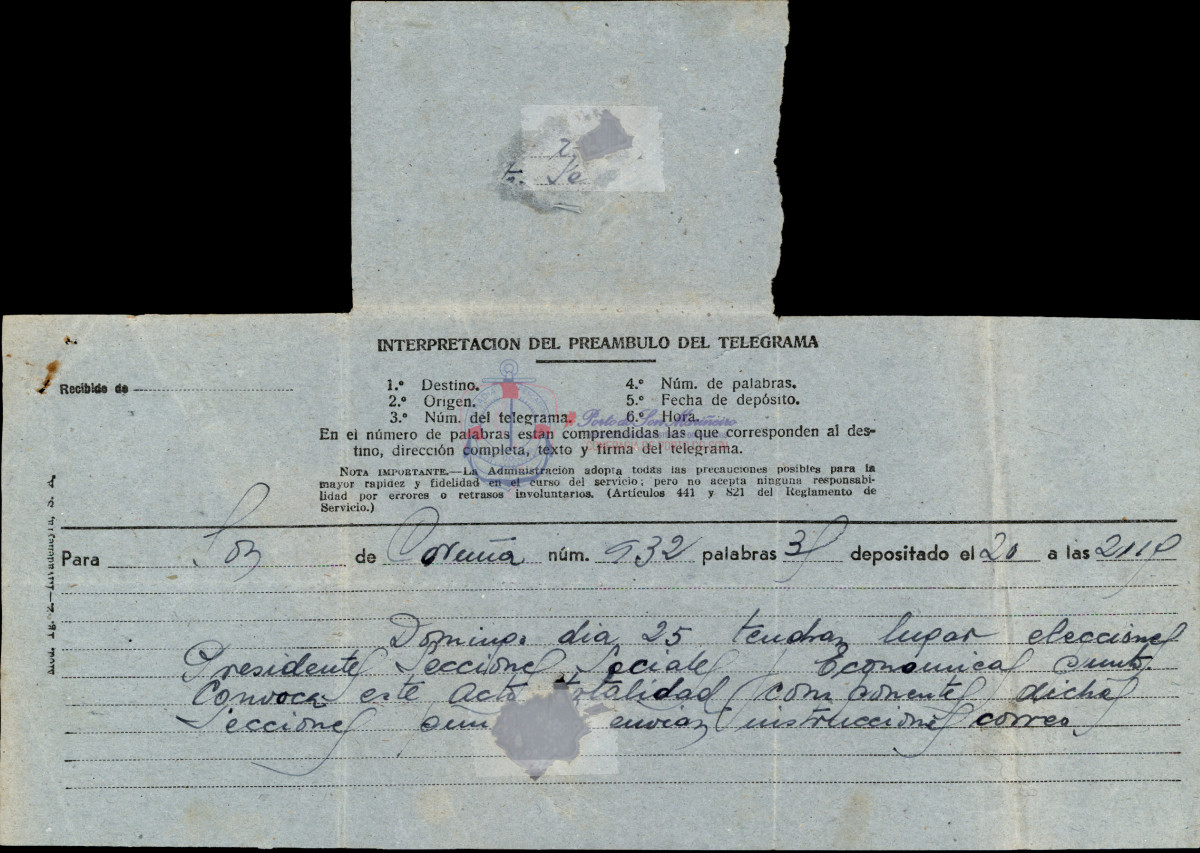 z
t. Se
INTERPRETACION DEL PREAMBULO DEL TELEGRAMA
Recibido de
1.º Destino.
2.º Origen.
3.º Núm. del telegrama.
4.º Núm. de palabras.
5.º Fecha de depósito.
6.º Hora.
En el número de palabras estan comprendidas las que corresponden al des-
tino, dirección completa, texto y firma del telegrama.
Porto do Son Mariñeiro
NOTA IMPORTANTE.—La Administracion adopta todas las precauciones posibles para la
mayor rapidez y fidelidad en el curso del servicio; pero no acepta ninguna responsabi-
lidad por errores o retrasos involuntarios. (Artículos 441 y 821 del Reglamento de
Servicio.)
Rivadeneyra, S. A.
Para Son de Coruña núm. 932 palabras depositado el 20 a las
Domingo dia 25 tendran lugar elecciones
Presidentes Secciones Sociales y Economicas
Convoca este acto totalidad componentes dichas
Secciones envian instrucciones correo